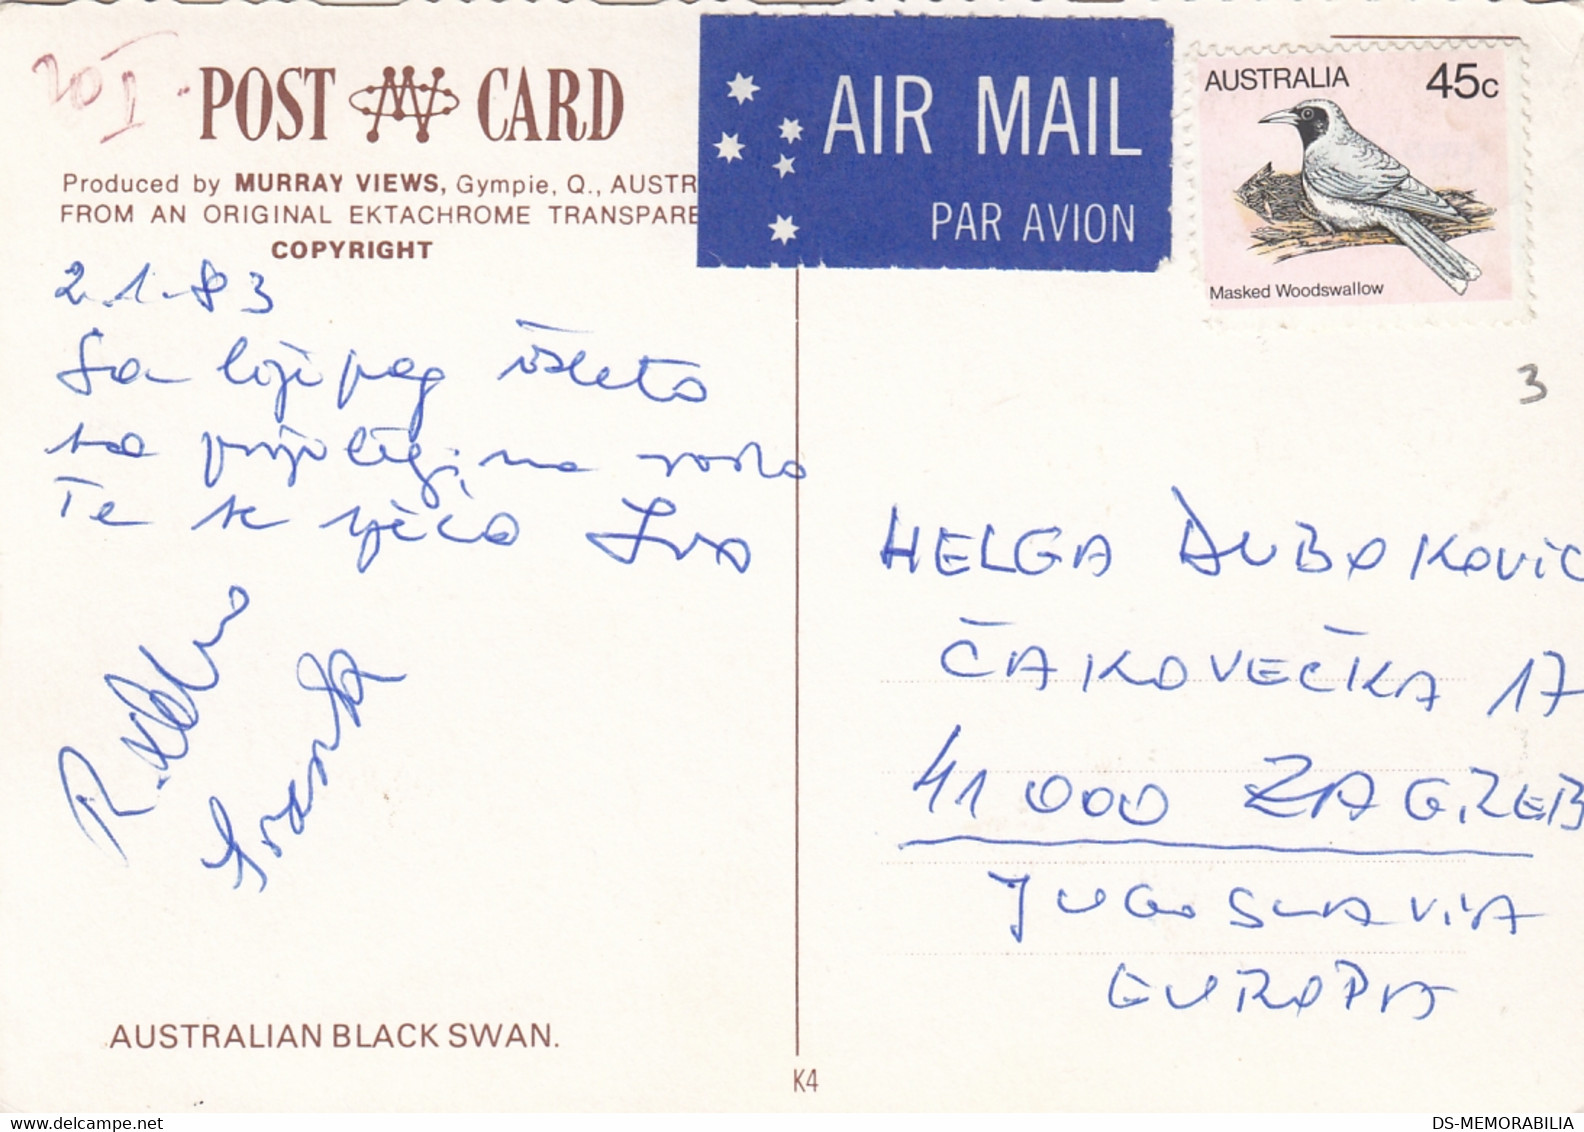 20 I
POST CARD
Produced by MURRAY VIEWS, Gympie, Q., AUSTR
FROM AN ORIGINAL EKTACHROME TRANSPARE
COPYRIGHT
AIR MAIL
PAR AVION
AUSTRALIA 45c
Masked Woodswallow
3
2.1.83
Sa lijepog izleta
na
Te se sjeća Iva
HELGA DUBOKOVIC
ČAKOVEČKA 17
41 000 ZAGREB
JUGOSLAVIJA
EUROPA
AUSTRALIAN BLACK SWAN.
K4
DS-MEMORABILIA